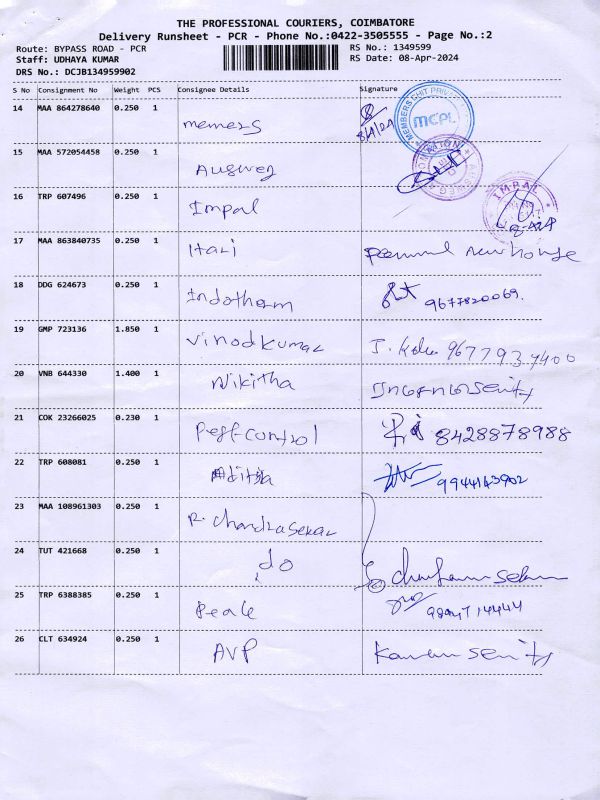 THE PROFESSIONAL COURIERS, COIMBATORE
Delivery Runsheet - PCR - Phone No.:0422-3505555 - Page No.:2
Route: BYPASS ROAD - PCR
RS No.: 1349599
Staff: UDHAYA KUMAR
RS Date: 08-Apr-2024
DRS No.: DCJB134959902
S No Consignment No Weight PCS Consignee Details Signature
14 MAA 864278640 0.250 1 memers 8/4/24
MEMBERS CHIT PRIVA
MCPL
15 MAA 572054458 0.250 1 Ausweg
16 TRP 607496 0.250 1 Impal
IMPAL
17 MAA 863840735 0.250 1 Hari Perumal new house
18 DDG 624673 0.250 1 Indotherm 9677820069.
19 GMP 723136 1.850 1 Vinodkumar 9677937400
20 VNB 644330 1.400 1 Nikitha
21 COK 23266025 0.230 1 Pest-control 8428878988
22 TRP 608081 0.250 1 Aditya 9944143902
23 MAA 108961303 0.250 1 R. Chandrasekar
24 TUT 421668 0.250 1 do
25 TRP 6388385 0.250 1
26 CLT 634924 0.250 1 AVP